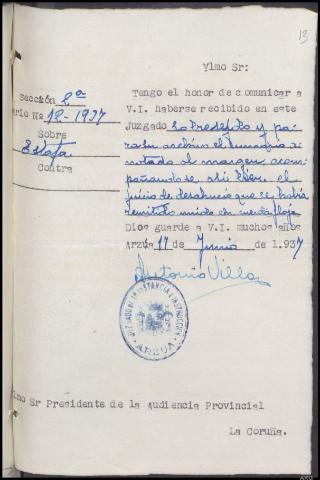 13
Ylmo Sr:
Sección 2ª
ario Nº 12-1937
Sobre
Estafa
Contra
Tengo el honor de comunicar a
V.I. haberse recibido en este
Juzgado y pa-
ra su archivo el sumario a-
notado al margen, acom-
pañandose el
juicio de desahucio que se había
remitido unido en cuerda floja
Dios guarde a V.I. muchos años
Arzúa 17 de Junio de 1.937
Antonio Villa
JUZGADO DE 1ª INSTANCIA E INSTRUCCION
ARZUA
lmo Sr Presidente de la Audiencia Provincial
La Coruña.